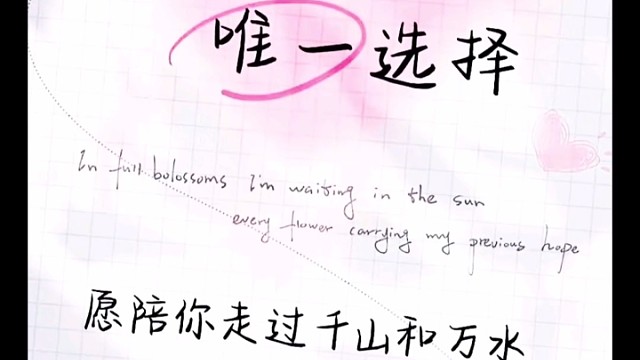 唯一选择
In full bolossoms I'm waiting in the sun
every flower carrying my previous hope
愿陪你走过千山和万水